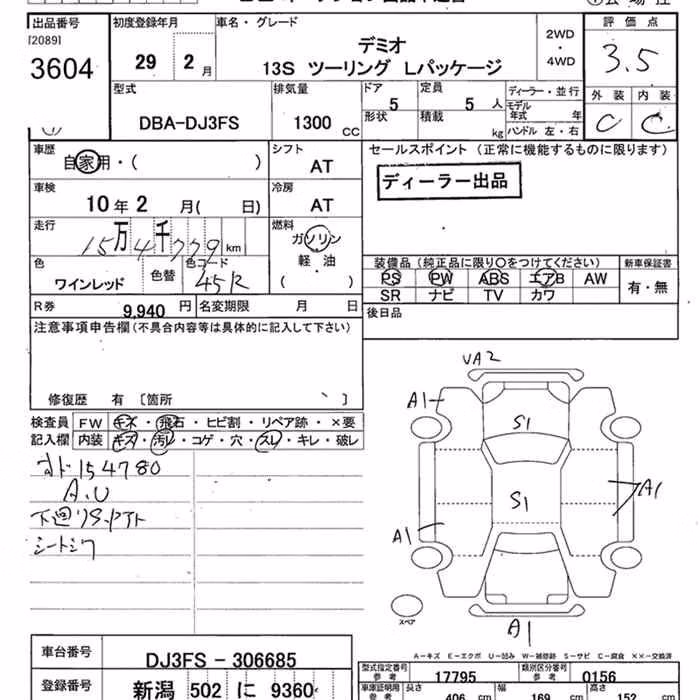 出品番号 初度登録年月 車名・グレード 評価点
[2089]
3604
29 2月
デミオ
13S ツーリング Lパッケージ
2WD
・
4WD
3.5
外装 内装
C C
型式 排気量 ドア 定員 ディーラー・並行
DBA-DJ3FS 1300 CC 5 5人
形状 積載 kg
モデル年式 年
ハンドル 左・右
車歴 シフト セールスポイント (正常に機能するものに限ります)
自家用・( ) AT
ディーラー出品
車検 冷房
10年2月( 日) AT
走行 燃料
15万4千779km ガソリン
軽・油
( )
色 色替 色コード
ワインレッド 45R
装備品 (純正品に限り〇をつけてください) 新車保証書
PS PW ABS エアB AW 有・無
SR ナビ TV カワ
R券 9,940円 名変期限 月 日
後日品
注意事項申告欄 (不具合内容等は具体的に記入して下さい)
修復歴 有 [箇所 ]
検査員記入欄 FW キズ・飛石・ヒビ割・リペア跡・×要
内装 キズ・汚レ・コゲ・穴・スレ・キレ・破レ
オド154780
A.U
下廻リS.
VA2
A1
S1
S1
A1
A1
A1
スペア
A-キズ E-エクボ U-凹み W-補修跡 S-サビ C-腐食 ××-交換済
車台番号 DJ3FS-306685
登録番号 新潟 502 に 9360
型式指定番号 参考 17795 類別区分番号 参考 0156
車庫証明用 参考 長さ 406 cm 幅 169 cm 高さ 152 cm